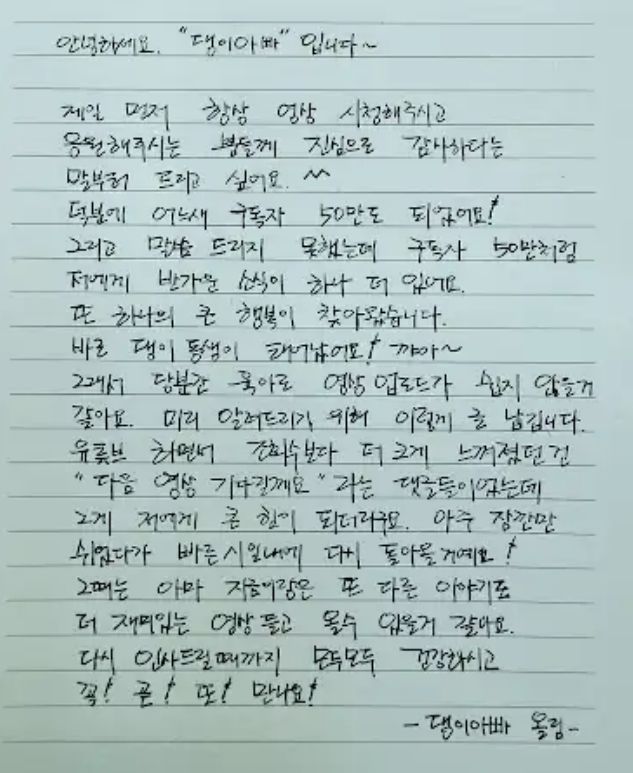 안녕하세요. "댕이아빠" 입니다~
제일 먼저 항상 영상 시청해주시고
응원해주시는 분들께 진심으로 감사하다는
말부터 드리고 싶어요. ^^
덕분에 어느새 구독자 50만도 되었어요!
그리고 말씀 드리지 못했는데 구독자 50만처럼
저에게 반가운 소식이 하나 더 있어요.
또 하나의 큰 행복이 찾아왔습니다.
바로 댕이 동생이 태어났어요! 꺄아~
그래서 당분간 육아로 영상 업로드가 쉽지 않을거
같아요. 미리 알려드리기 위해 이렇게 글 남깁니다.
유튜브 하면서 조회수보다 더 크게 느껴졌던건
"다음 영상 기다릴께요" 라는 댓글들이었는데
그게 저에게 큰 힘이 되더라구요. 아주 잠깐만
쉬었다가 빠른시일내에 다시 돌아올거예요!
그때는 아마 지금이랑은 또 다른 이야기로
더 재미있는 영상 들고 올수 있을거 같아요.
다시 인사드릴때까지 모두모두 건강하시고
꼭! 곧! 또! 만나요!
- 댕이아빠 올림 -